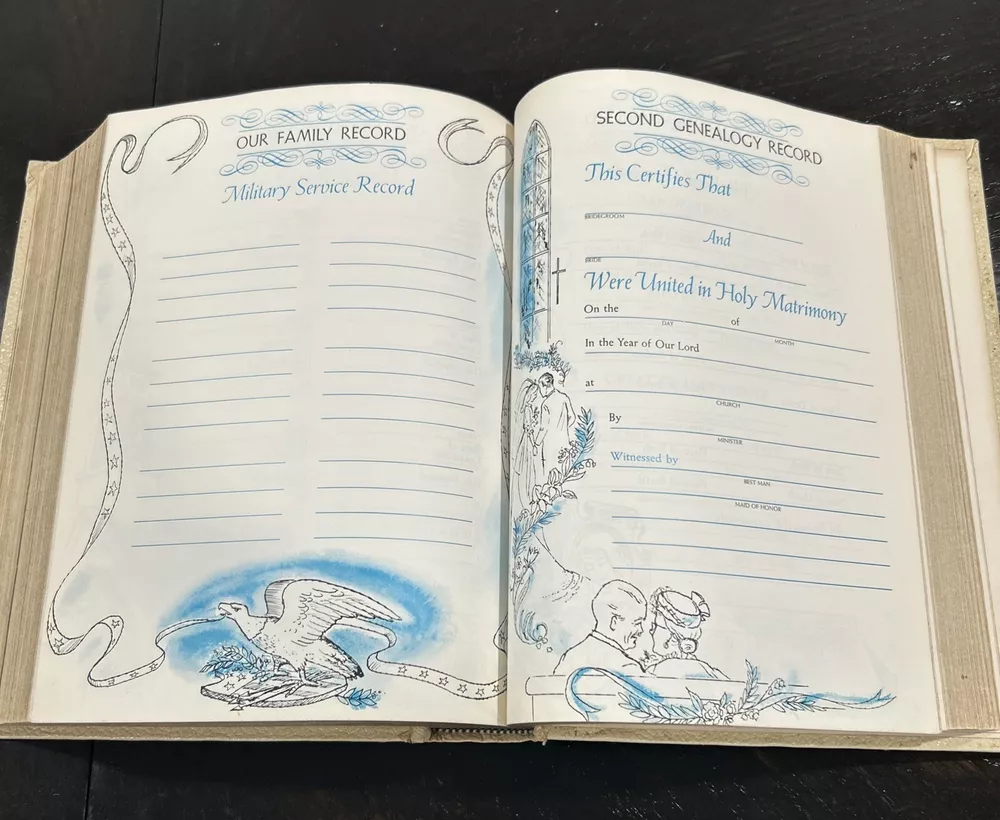 OUR FAMILY RECORD
Military Service Record
SECOND GENEALOGY RECORD
This Certifies That
BRIDEGROOM
And
BRIDE
Were United in Holy Matrimony
On the of
DAY MONTH
In the Year of Our Lord
at
CHURCH
By
MINISTER
Witnessed by
BEST MAN
MAID OF HONOR